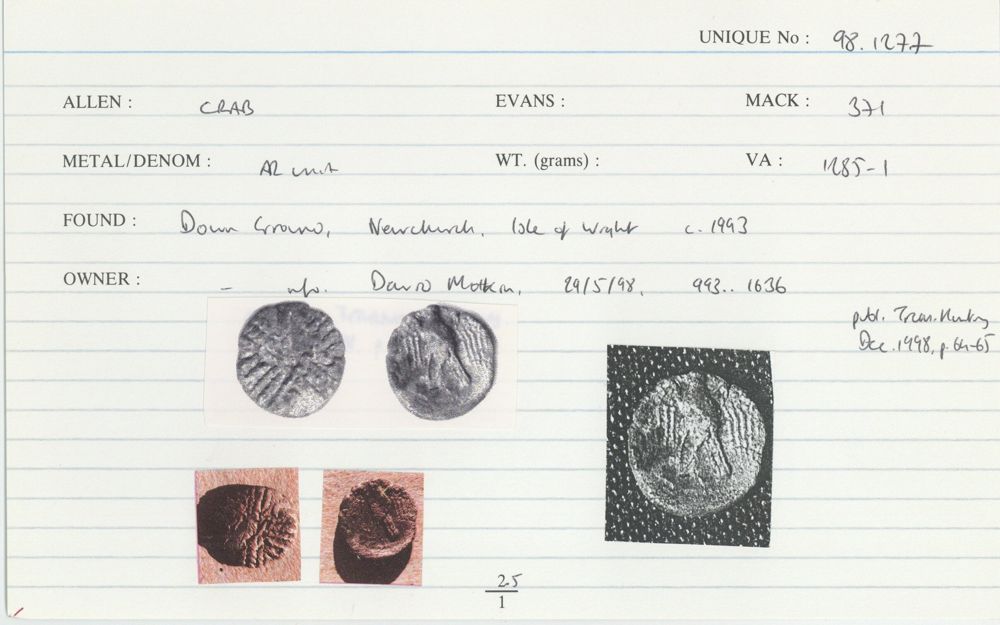 UNIQUE No : 98.1277
ALLEN : CRAB EVANS : MACK : 371
METAL/DENOM : AR unit WT. (grams) : VA : 1285-1
FOUND : Down Ground, Newchurch, Isle of Wight c. 1993
OWNER : - info. David 29/5/98, 993.. 1636
publ. Treas. Hunting
Dec. 1998, p. 64-65
2.5
1